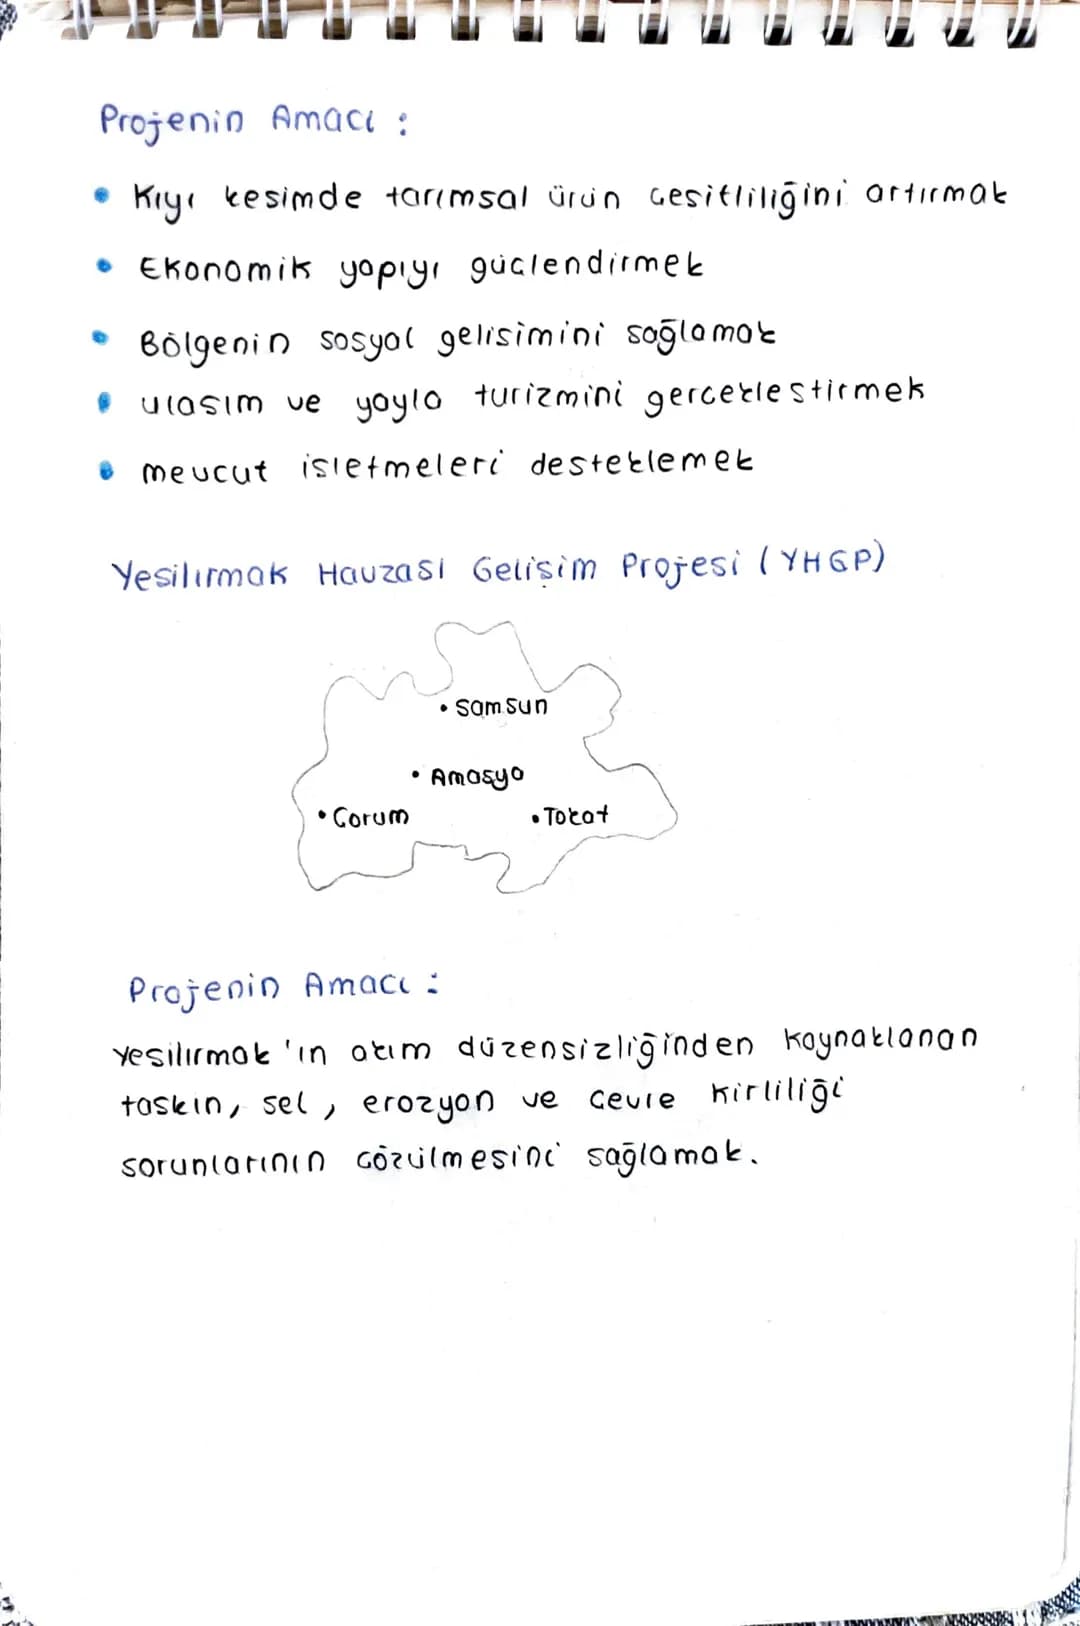 Projenin Amacı :
• Kıyı kesimde tarımsal ürün cesitliliğini artırmak
• Ekonomik yapıyı güclendirmek
• Bölgenin sosyal gelisimini sağlamak
• ulasım ve yayla turizmini gerceklestirmek
• mevcut isletmeleri desteklemek
Yesilırmak Havzası Gelişim Projesi (YHGP)
• Samsun
• Amasya
• Corum
• Tokat
Projenin Amacı :
Yesilırmak'ın akım düzensizliğinden kaynaklanan
taskın, sel, erozyon ve cevre kirliliği
sorunlarının cözülmesini sağlamak.